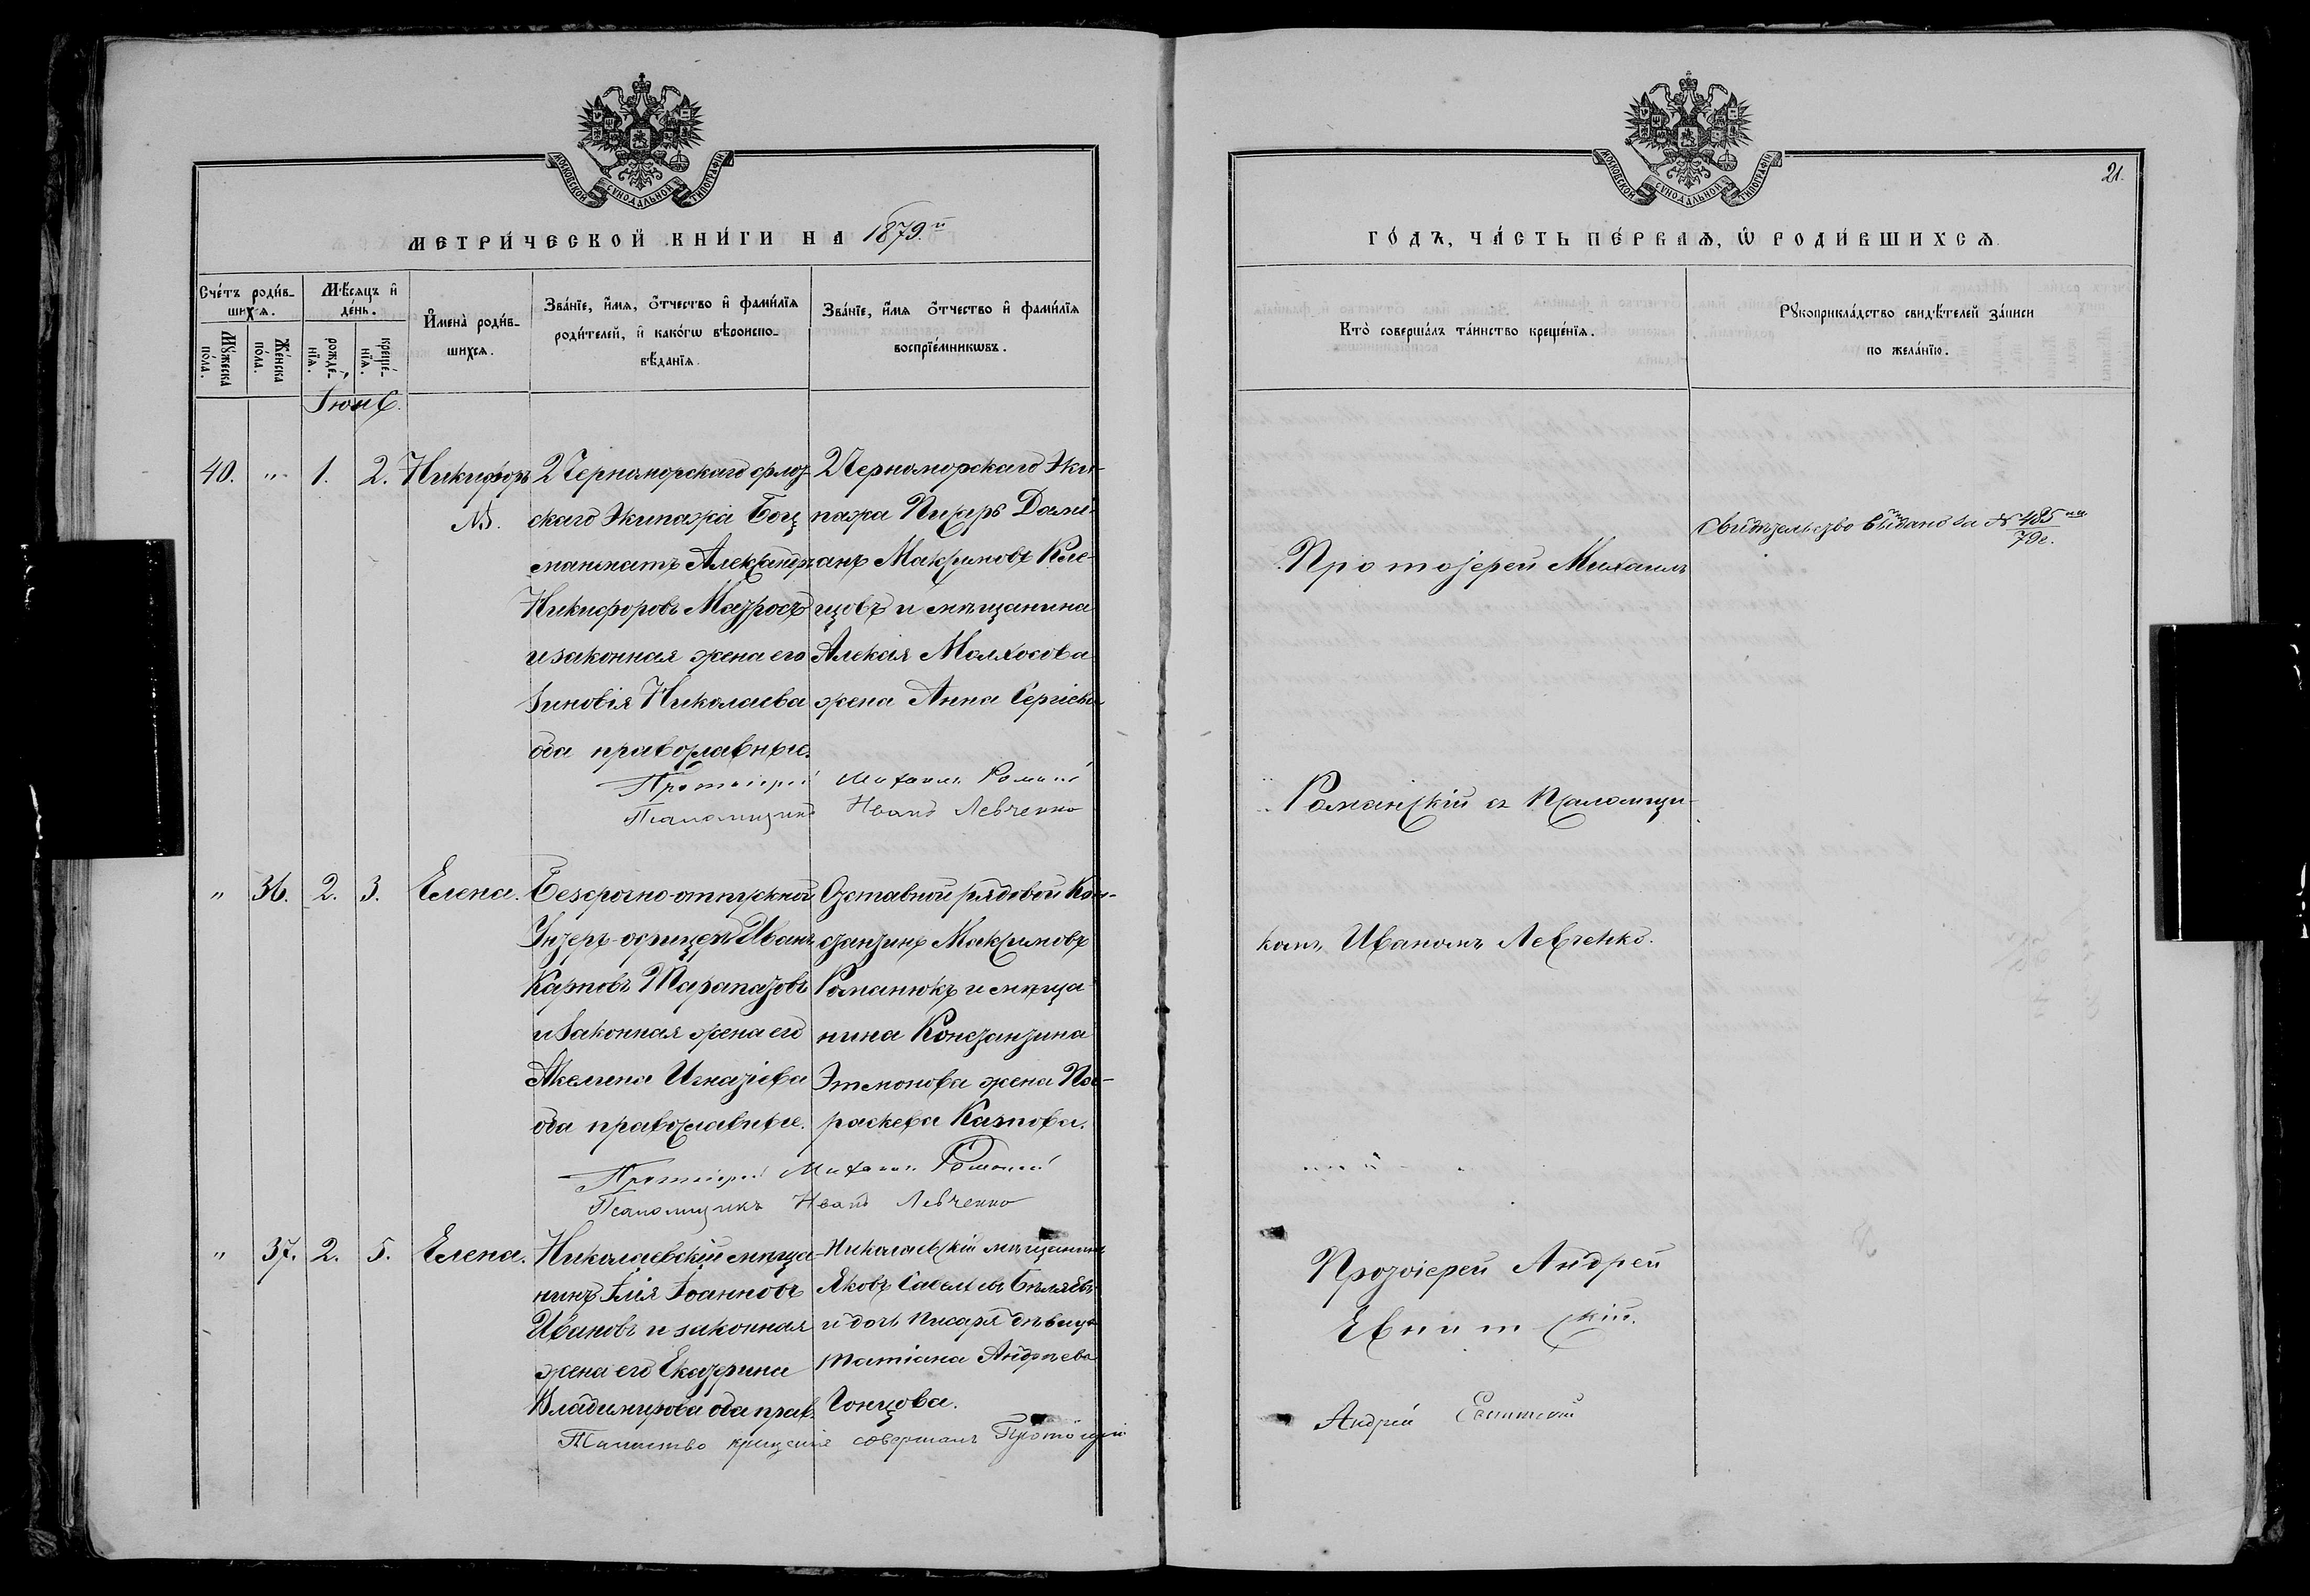 МОСКОВСКОЙ СУНОДАЛЬНОЙ ТИПОГРАФІИ
МЕТРИ́ЧЕСКОЙ КНИ́ГИ НА 1879.й
Сче́тъ роди́в-
шихсѧ.
Мꙋ́жеска
по́ла.
Же́нска
по́ла.
Мѣ́сѧцъ и҆
де́нь.
рожде́-
нїѧ.
креще́-
нїѧ.
И҆мена̀ роди́в-
шихсѧ.
Зва́нїе, и҆́мѧ, ѻ҆́тчество и҆ фами́лїѧ
роди́телей, и҆ како́гѡ вѣроиспо-
вѣ́данїѧ.
Зва́нїе, и҆́мѧ ѻ҆́тчество и҆ фами́лїѧ
воспрїе́мникѡвъ.
Іюнь.
40. " 1. 2. Никифоръ
№.
2 Черноморскаго флот-
скаго Экипажа Боц
манматъ Александръ
Никифоровъ Матросъ
и законная жена его
Зиновія Николаева
оба православные.
2 Черноморскаго Эки-
пажа Писарь Дамі-
анъ Максимовъ Кле-
щовъ и мѣщанина
Алексѧ Малхосова
жена Анна Сергіева
Протоіерей Михаилъ Романскій
Псаломщикъ Иванъ Левченко
" 36. 2. 3. Елена.
Безсрочно-отпускной
Унтеръ-офицеръ Иванъ
Карповъ Тарапатовъ
и законная жена его
Акелина Игнатіева
оба православные.
Отставной рядовой Кон-
стантинъ Максимовъ
Романюкъ и мѣща-
нина Константина
жена Па-
раскева Карпова.
Протоіерей Михаилъ Романскій
Псаломщикъ Иванъ Левченко
" 37. 2. 5. Елена.
Николаевскій мѣща-
нинъ Илія Іоанновъ
Ивановъ и законная
жена его Екатерина
Владимирова оба прав.
Николаевскій мѣщанинъ
Яковъ Савельевъ Бѣляевъ
и дочь писаря дѣвица
Татіана Андреева
Гонцова.
Таинство крещенія совершалъ Протоіерей
МОСКОВСКОЙ СУНОДАЛЬНОЙ ТИПОГРАФІИ
21.
ГО́ДЪ, ЧА́СТЬ ПЕ́РВАѦ, Ѡ҆ РОДИ́ВШИХСѦ
Кто̀ соверша́лъ та́инство креще́нїѧ.
Рꙋкоприкла́дство свидѣ́телей за́писи
по жела́нїю.
Протоіерей Михаилъ
Романскій съ Псаломщи-
комъ Иваномъ Левченко.
Свидѣтельство выдано за № 485
79 г.
Протоіерей Андрей
Евнитскій.
Андрей Евнитскій